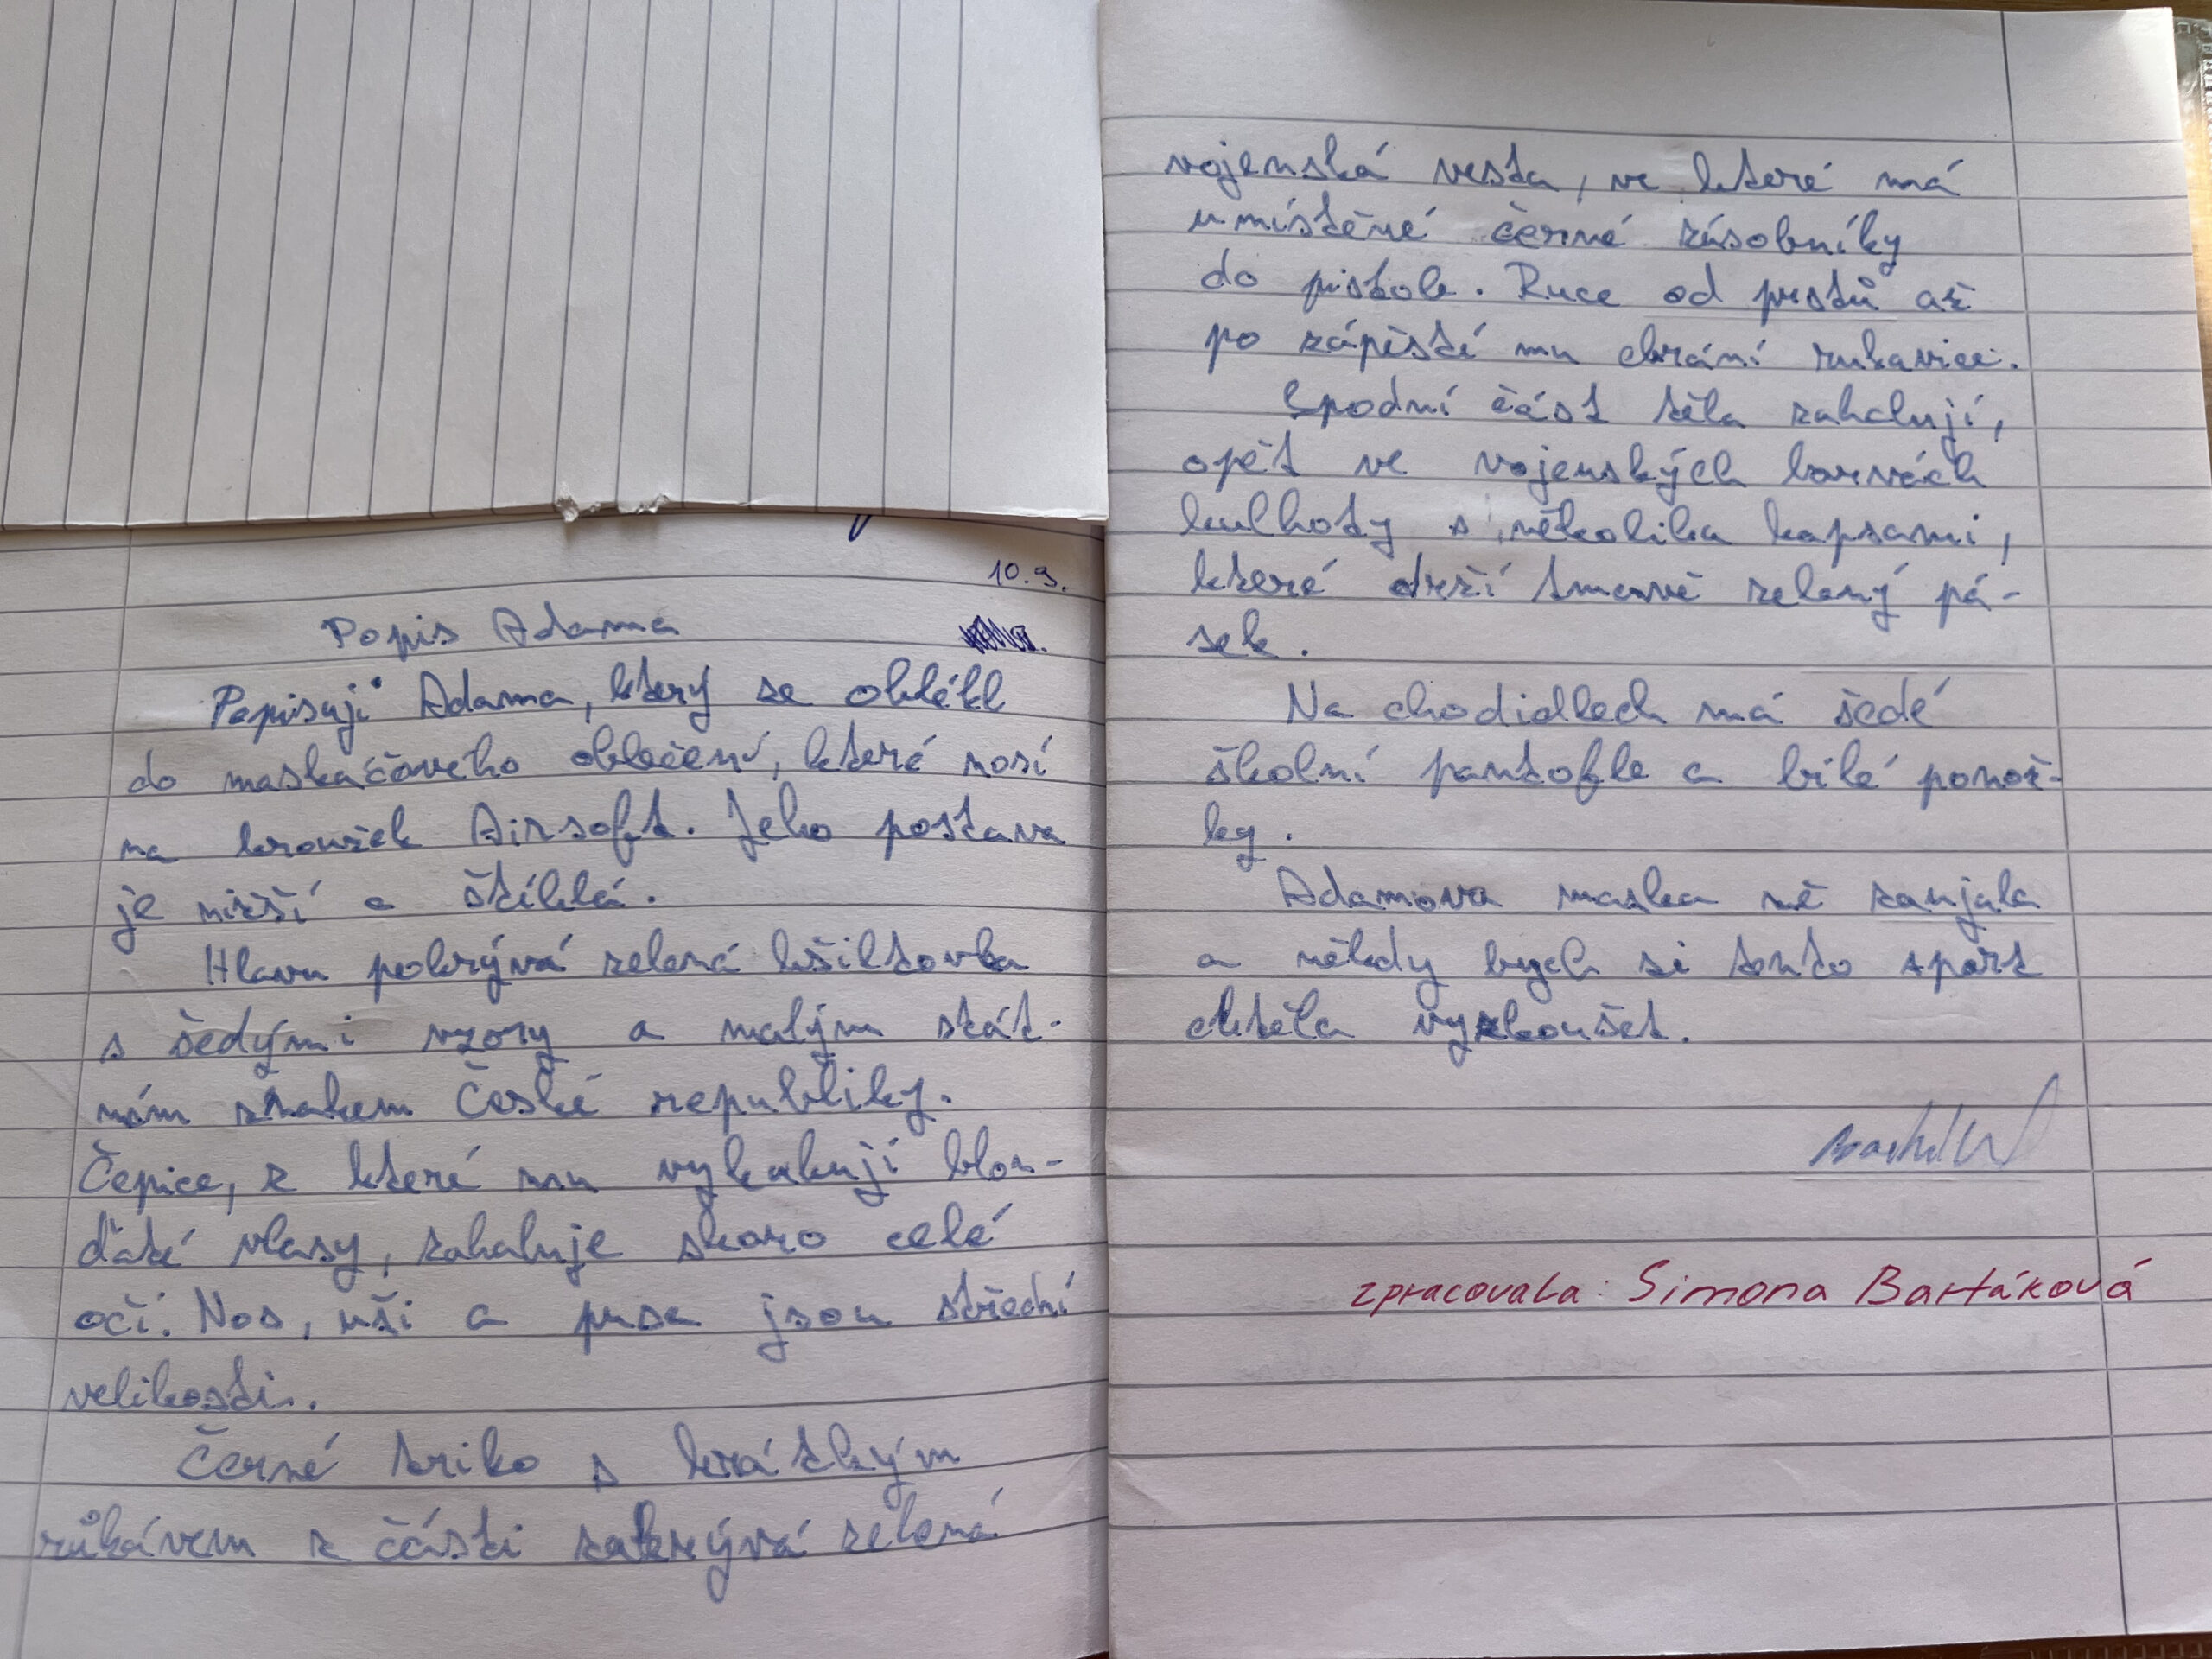 10. 9.
Popis Adama
Popisuji Adama, který se oblékl
do maskáčového oblečení, které nosí
na kroužek Airsoft. Jeho postava
je nižší a štíhlá.
Hlavu pokrývá zelená kšiltovka
s šedými vzory a malým stát-
ním znakem České republiky.
Čepice, z které mu vykukují blon-
ďaté vlasy, zahaluje skoro celé
oči. Nos, uši a pusa jsou střední
velikosti.
Černé triko s krátkým
růkávem z části zakrývá zelená
vojenská vesta, ve které má
umístěné černé zásobníky
do pistole. Ruce od prstů až
po zápěstí mu chrání rukavice.
Spodní část těla zahalují,
opět ve vojenských barvách
kalhoty s několika kapsami,
které drží tmavě zelený pá-
sek.
Na chodidlech má šedé
školní pantofle a bílé ponož-
ky.
Adamova maska mě zaujala
a někdy bych si tento sport
chtěla vyzkoušet.
zpracovala: Simona Bartáková